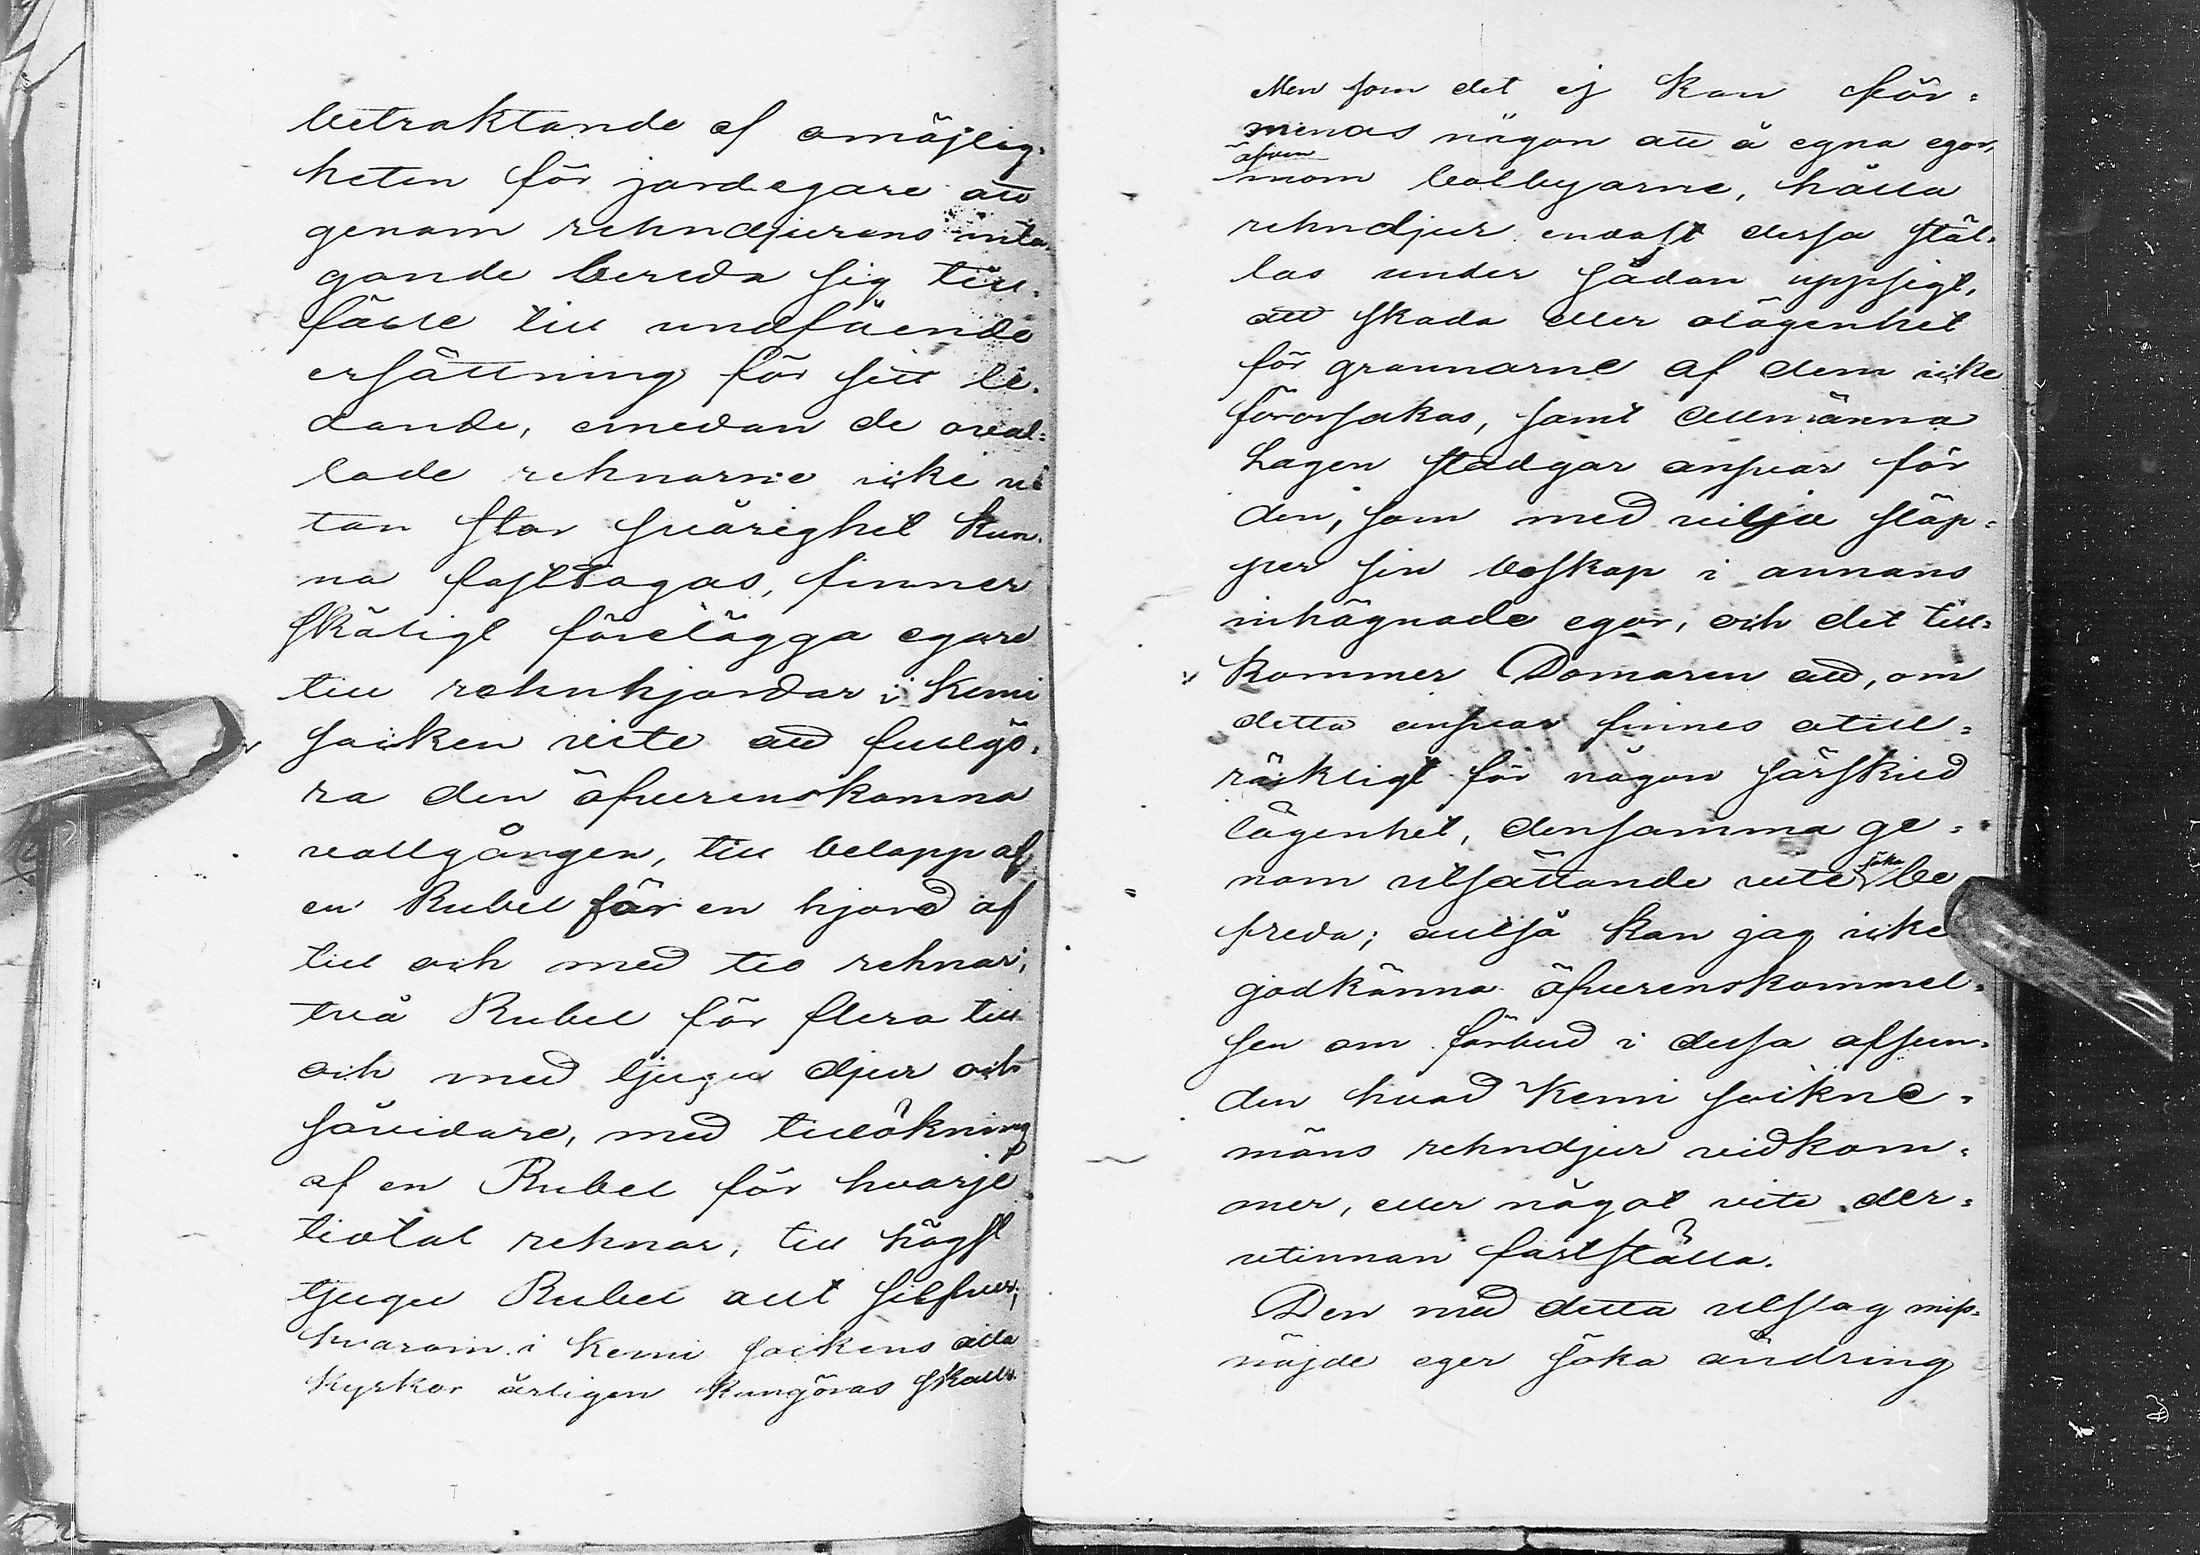 betraktande af omöjlig-
heten för jordegare att
genom rehndjurens inta-
gande bereda sig till-
fälle till undfående
ersättning för sitt li-
dande, emedan de oval-
lade rehnarne icke u-
tan stor svårighet kun-
na fasttagas, finner
skäligt förelägga egare
till rehnhjordar i Kemi
socken vite att fullgö-
ra den öfverenskomna
vallgången, till belopp af
en Rubel för en hjord af
till och med tio rehnar;
två Rubel för flera till
och med tjugu djur och
såvidare, med tillökning
af en Rubel för hvarje
tiotal rehnar, till högst
tjugu Rubel allt silfver;
hvarom i Kemi sockens alla
kyrkor årligen kungöras skall.
Men som det ej kan för-
menas någon att å egna egor,
äfven
inom bolbyarne, hålla
rehndjur endast dessa stäl-
las under sådan uppsigt,
att skada eller olägenhet
för grannarne af dem icke
förorsakas, samt Allmänna
Lagen stadgar ansvar för
den, som med vilja släp-
per sin boskap i annans
inhägnade egor, och det till-
kommer Domaren att, om
detta ansvar finnes otill-
räckligt för någon särskild
lägenhet, densamma ge-
nom utsättande vite söka be
freda; alltså kan jag icke
godkänna öfverenskommel-
sen om förbud i dessa afseen-
den hvad Kemi sockne-
mäns rehndjur vidkom-
mer, eller något vite der-
utinnan fastställa.
Den med detta utslag miss-
nöjde eger söka ändring